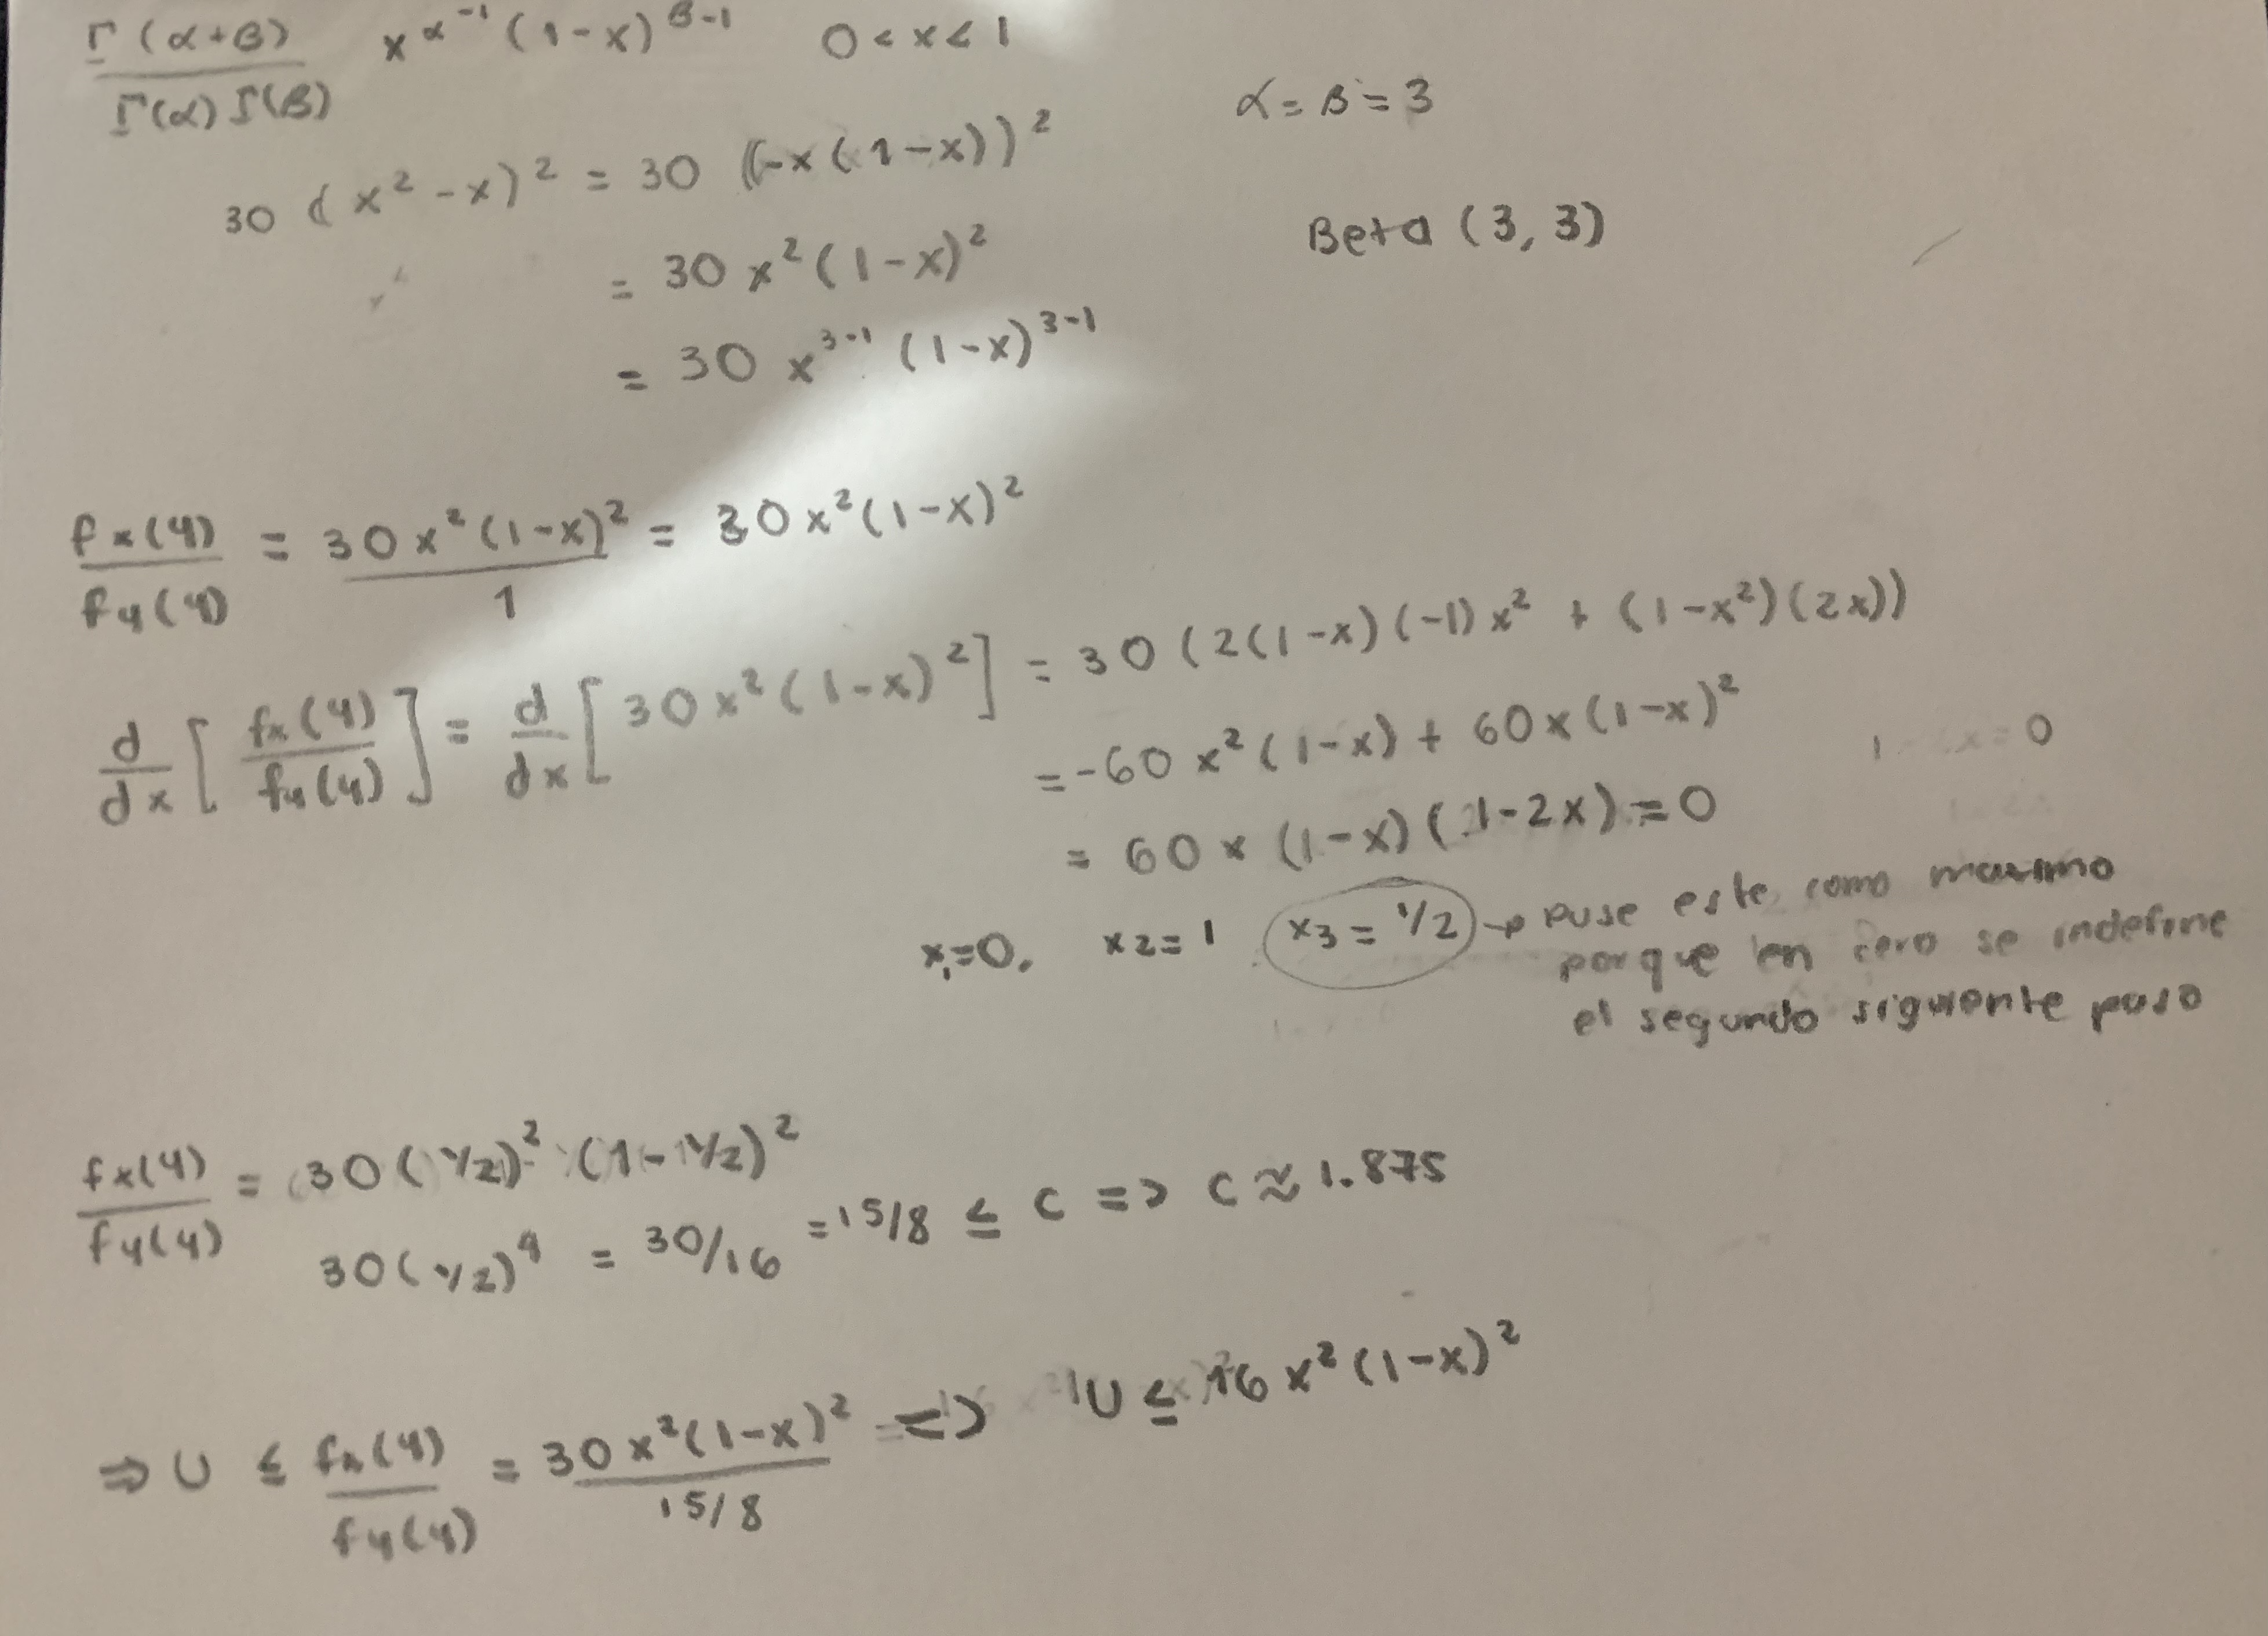 Γ(α+β) / Γ(α)Γ(β) x^α-1 (1-x)^β-1 0<x<1
α=β=3
30 (x²-x)² = 30 ((-x(1-x))²
Beta (3,3)
= 30 x²(1-x)²
= 30 x^3-1 (1-x)^3-1
fx(y)/fy(y) = 30x²(1-x)²/1 = 30x²(1-x)²
d/dx [fx(y)/fy(y)] = d/dx [30x²(1-x)²] = 30(2(1-x)(-1)x² + (1-x²)(2x))
= -60x²(1-x) + 60x(1-x)²
= 60x(1-x)(1-2x)=0
x₁=0, x2=1 x3=1/2 → puse este como maximo
porque en cero se indefine
el segundo siguiente paso
fx(y)/fy(y) = 30(1/2)² (1-1/2)²
30(1/2)⁴ = 30/16 = 15/8 ≤ c => c≈1.875
⇒ U ≤ fx(y)/fy(y) = 30x²(1-x)²/15/8 <=> U ≤ 16x²(1-x)²